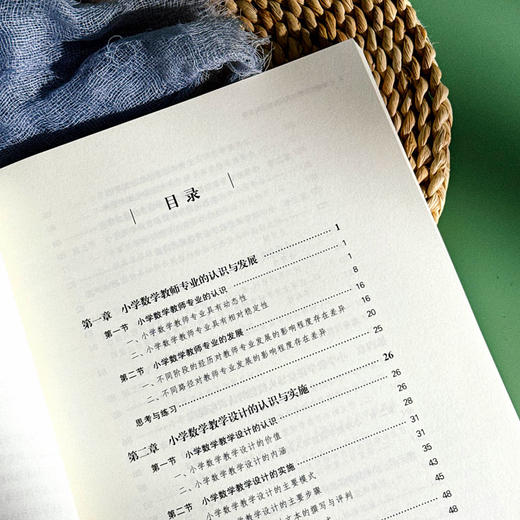 目录
第一章 小学数学教师专业的认识与发展 1
第一节 小学数学教师专业的认识 1
一、小学数学教师专业具有动态性
二、小学数学教师专业具有相对稳定性 8
第二节 小学数学教师专业的发展 16
一、不同阶段的经历对教师专业发展的影响程度存在差异 16
二、不同路径对教师专业发展的影响程度存在差异
思考与练习 25
第二章 小学数学教学设计的认识与实施 26
第一节 小学数学教学设计的认识 26
一、小学数学教学设计的价值
二、小学数学教学设计的内涵 28
第二节 小学数学教学设计的实施 31
一、小学数学教学设计的主要模式
二、小学数学教学设计的主要步骤 35
文本的撰写与评判